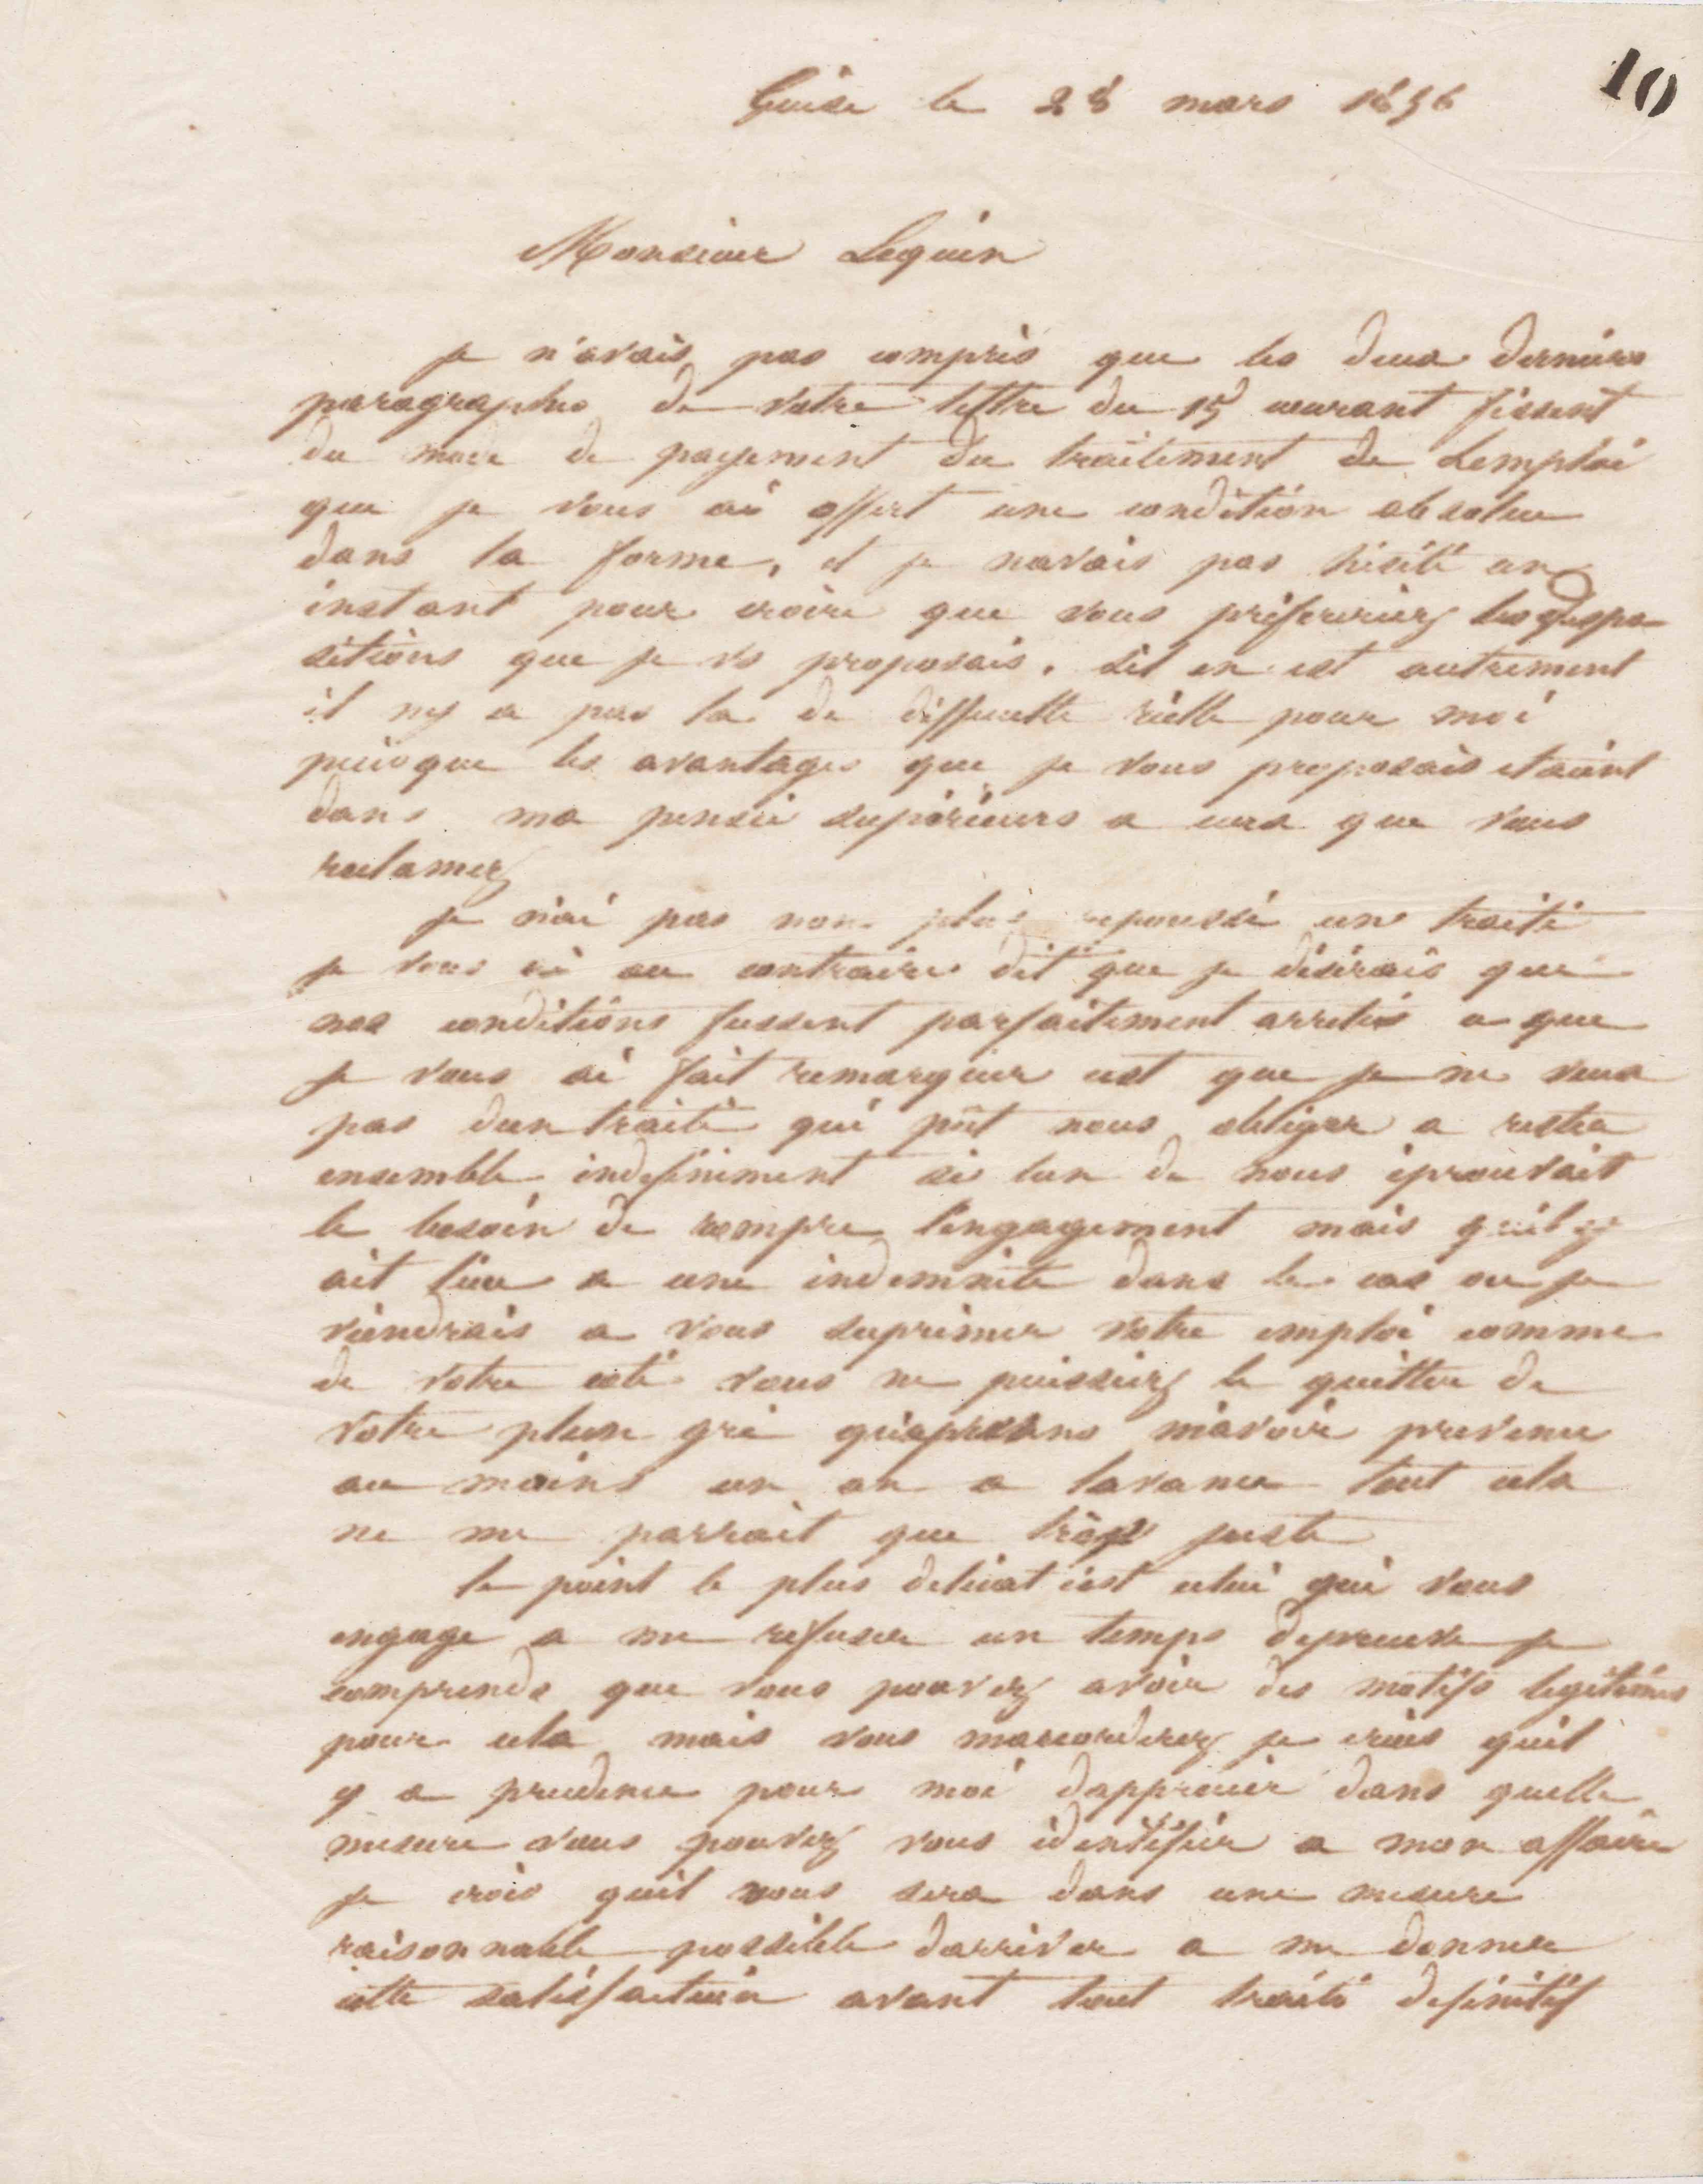 10
Guise le 28 mars 1856
Monsieur Lequin
je n'avais pas compris que les deux derniers
paragraphes de votre lettre du 15 courant fissent
du mode de payement du traitement de Lemploi
que je vous ai offert une condition absolue
dans la forme, et je navais pas hésité un
instant pour croire que vous préfereriez les dispo
sitions que je vs proposais. sil en est autrement
il ny a pas la de difficulte réelle pour moi
puisque les avantages que je vous proposais etaient
dans ma pensée supérieurs a ceux que vous
reclamez
je n'ai pas non plus repoussé un traité
je vous ai au contraire dit que je désirais que
nos conditions fussent parfaitement arretées ce que
je vous ai fait remarquer cest que je ne veux
pas dun traité qui pût nous obliger a rester
ensemble indefiniment si lun de nous éprouvait
le besoin de rompre l'engagement mais quil y
ait lieu a une indemnite dans le cas ou je
viendrais a vous suprimer votre emploi comme
de votre coté vous ne puissiez le quitter de
votre plein gré sans m'avoir prevenu
au moins un an a lavance tout cela
ne me parrait que trop juste
le point le plus delicat c'est celui qui vous
engage a me refuser un temps depreuve je
comprends que vous pouvez avoir des motifs legitimes
pour cela mais vous maccorderez je crois quil
y a prudence pour moi dapprecier dans quelle
mesure vous pouvez vous identifier a mon affaire
je crois quil vous sera dans une mesure
raisonnable possible darriver a me donner
cette satisfaction avant tout traité definitif